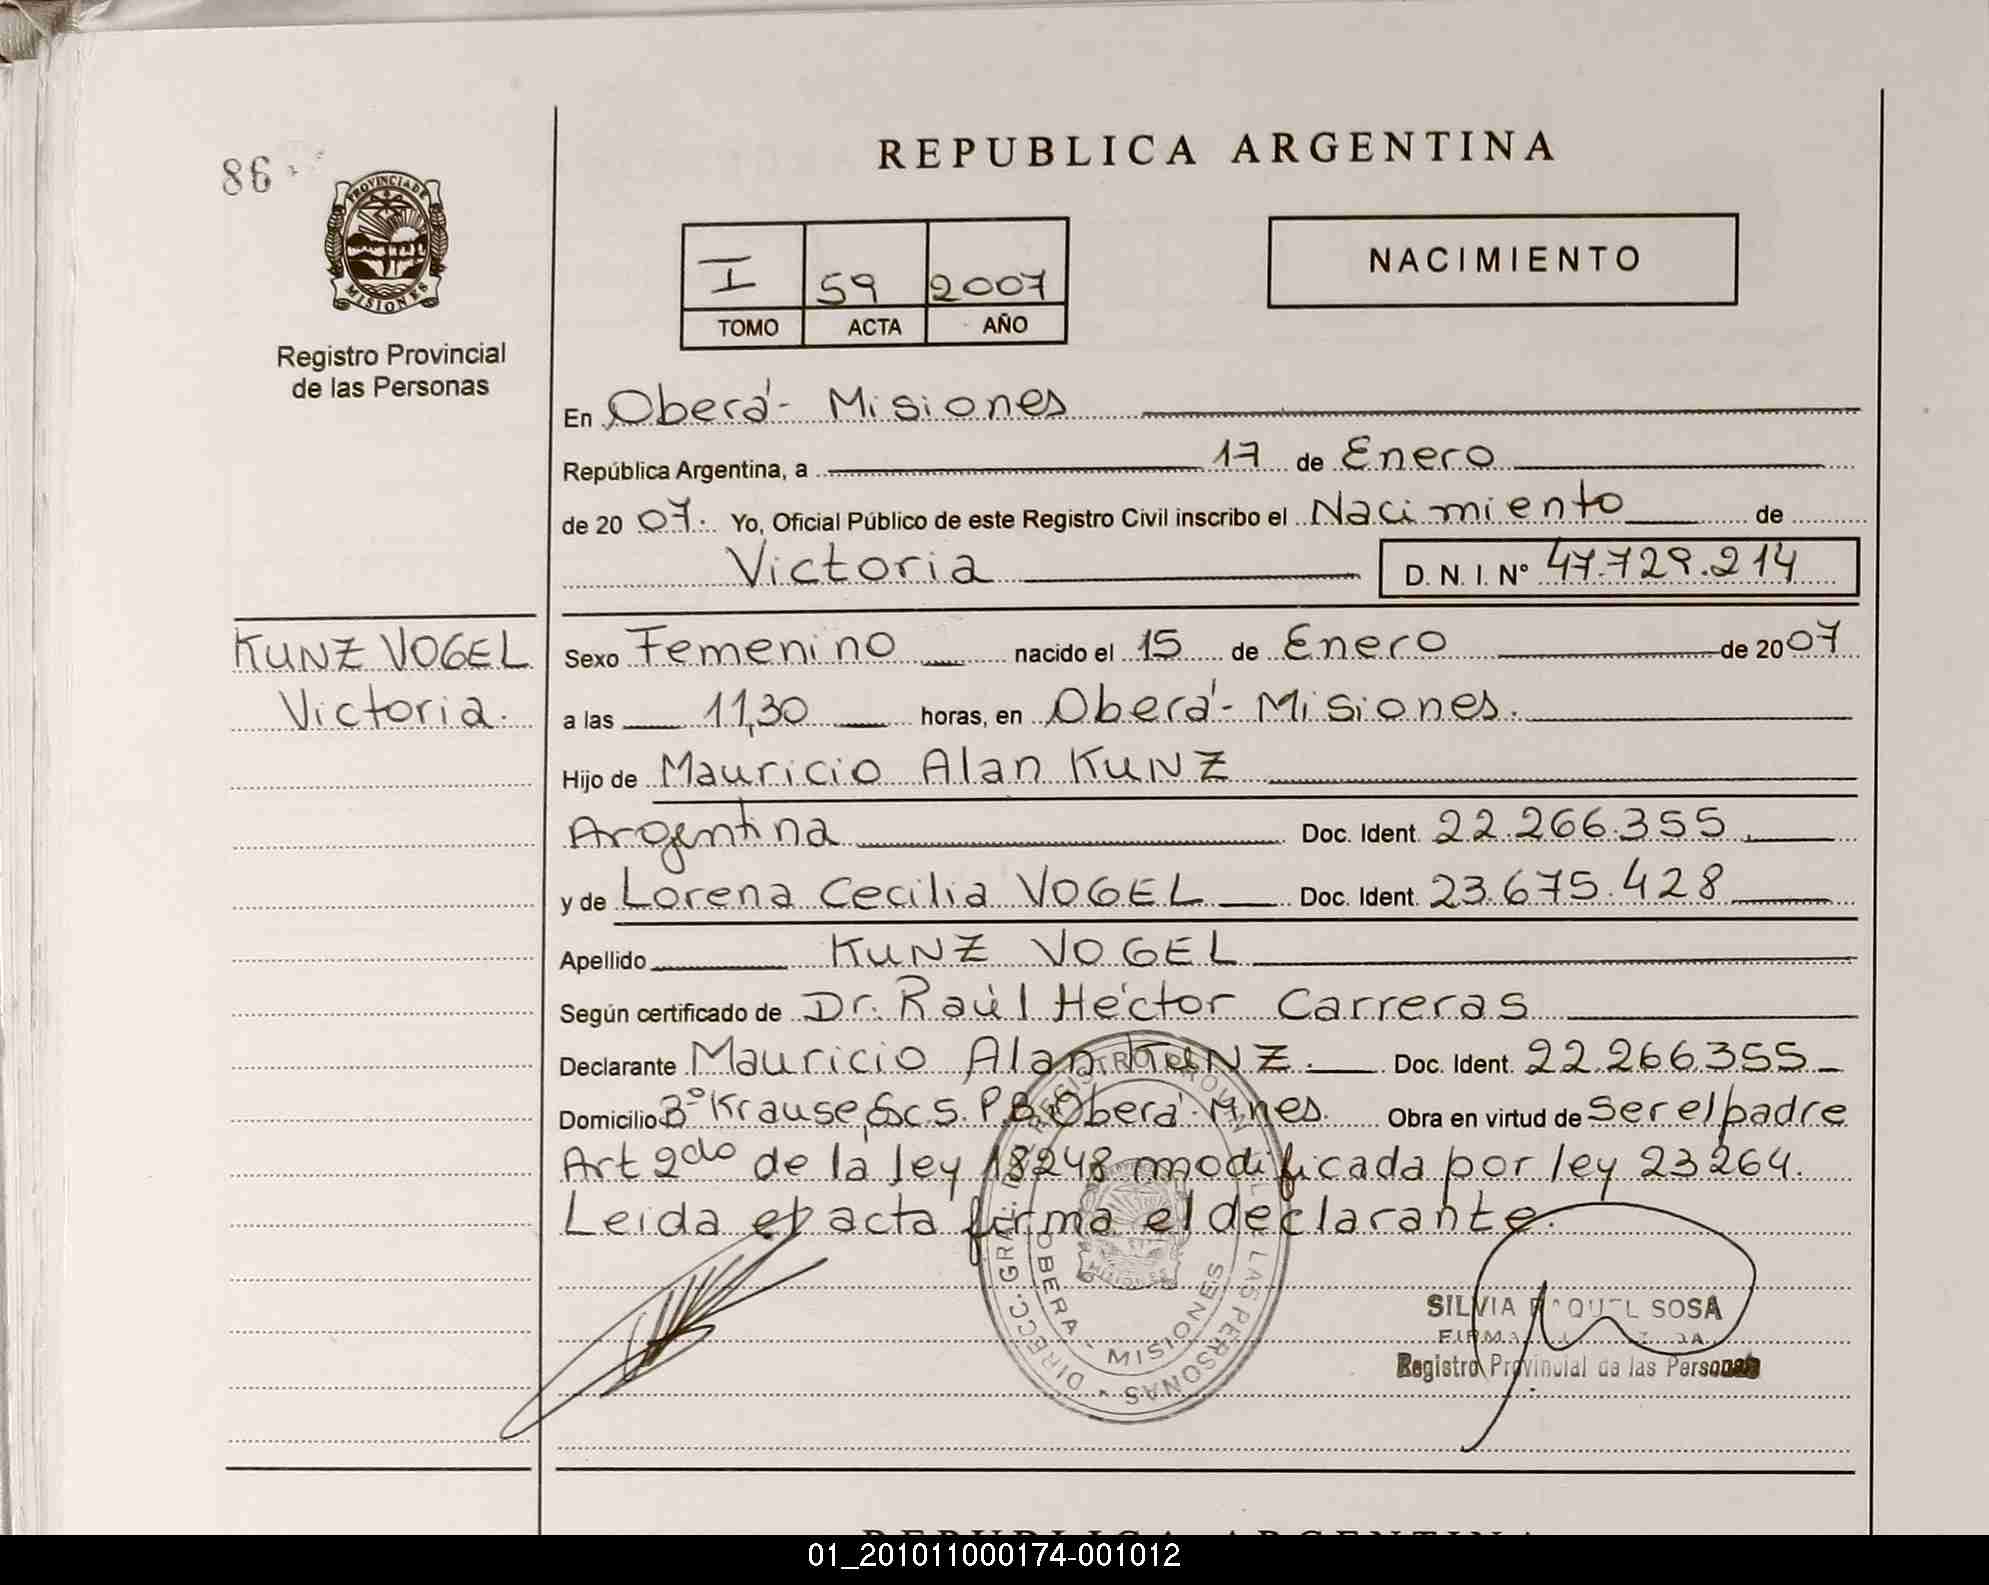 86
PROVINCIA DE
MISIONES
Registro Provincial
de las Personas
REPUBLICA ARGENTINA
I 59 2007
TOMO ACTA AÑO
NACIMIENTO
En Oberá - Misiones
República Argentina, a 17 de Enero
de 20 07. Yo, Oficial Público de este Registro Civil inscribo el Nacimiento de
Victoria D. N. I. N° 47.729.214
KUNZ VOGEL
Victoria.
Sexo Femenino nacido el 15 de Enero de 2007
a las 11,30 horas, en Oberá - Misiones.
Hijo de Mauricio Alan KUNZ
Argentina Doc. Ident. 22.266.355
y de Lorena Cecilia VOGEL Doc. Ident. 23.675.428
Apellido KUNZ VOGEL
Según certificado de Dr. Raúl Héctor Carreras
Declarante Mauricio Alan KUNZ. Doc. Ident. 22.266.355
Domicilio B° Krause, Esc 5. P.B. Oberá - Mnes. Obra en virtud de Ser el padre
Art 2do de la ley 18248 modificada por ley 23264.
Leida el acta firma el declarante.
DIRECC. GRAL. DEL REGISTRO PROVINCIAL DE LAS PERSONAS
OBERA - MISIONES
MISIONES
SILVIA RAQUEL SOSA
Registro Provincial de las Personas
REPUBLICA ARGENTINA
01_201011000174-001012